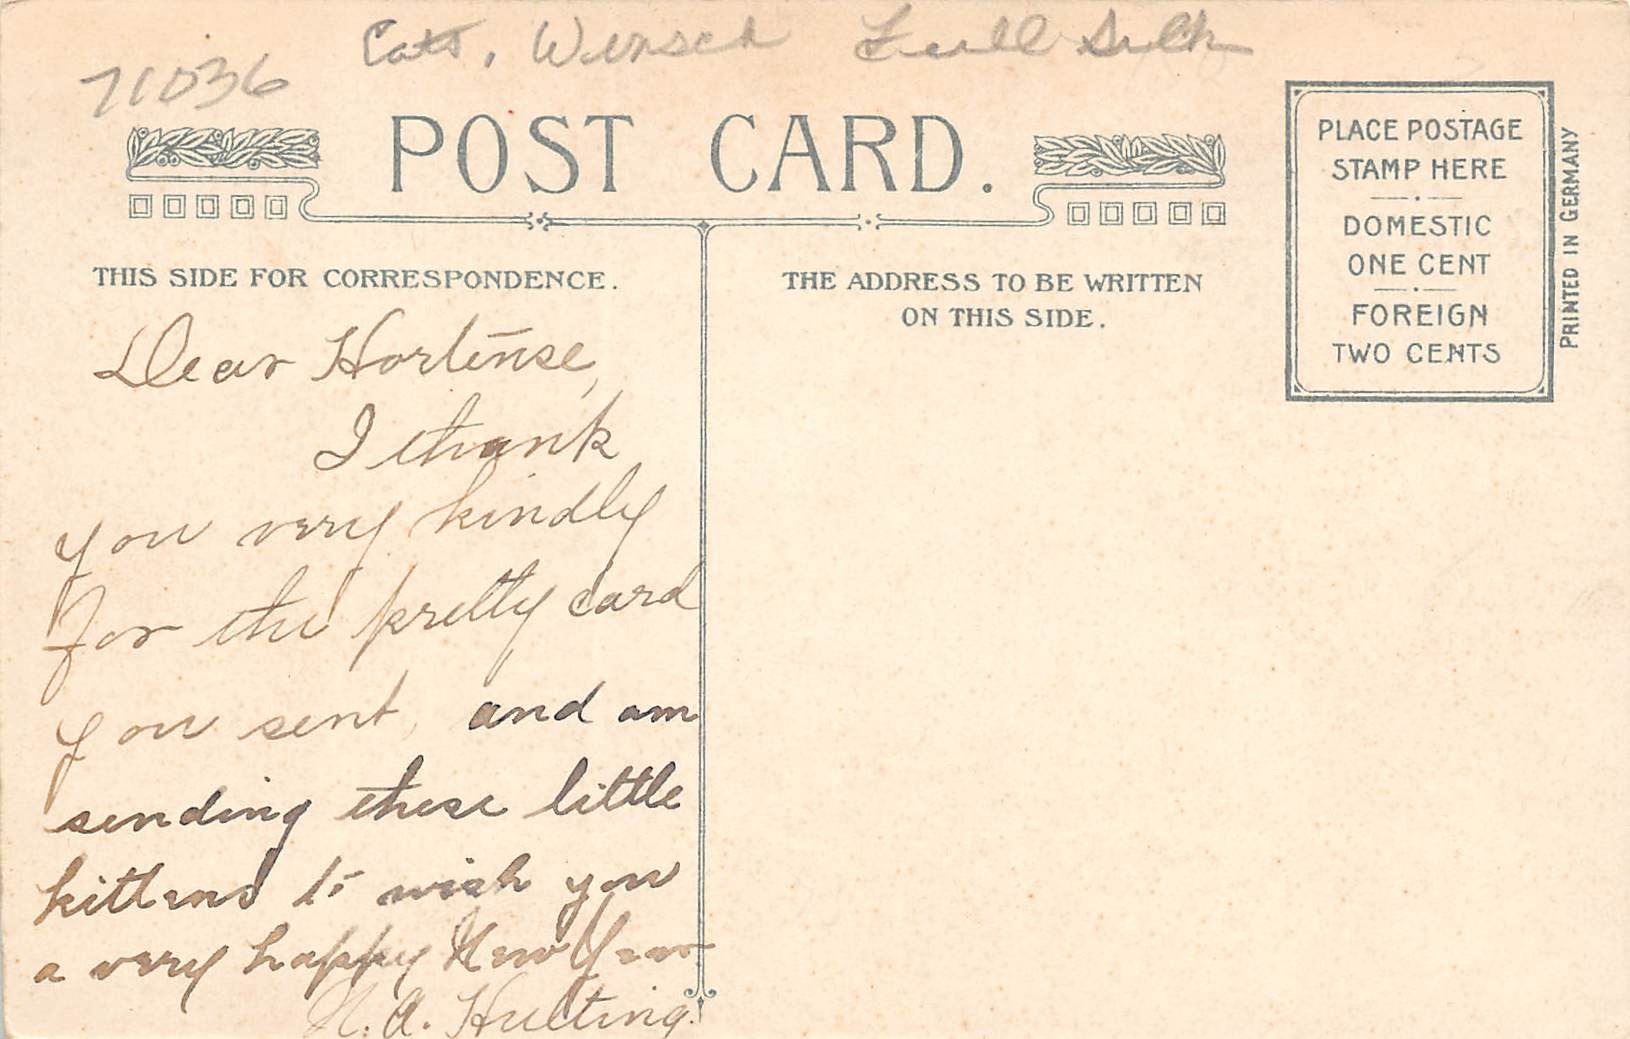 Cats, Wunsch Full Silk
71036
POST CARD.
PLACE POSTAGE
STAMP HERE
DOMESTIC
ONE CENT
FOREIGN
TWO CENTS
PRINTED IN GERMANY
THIS SIDE FOR CORRESPONDENCE.
THE ADDRESS TO BE WRITTEN
ON THIS SIDE.
Dear Hortense,
I thank
you very kindly
for the pretty card
you sent, and am
sending these little
kittens to wish you
a very happy New Year.
N. A. Hulting.